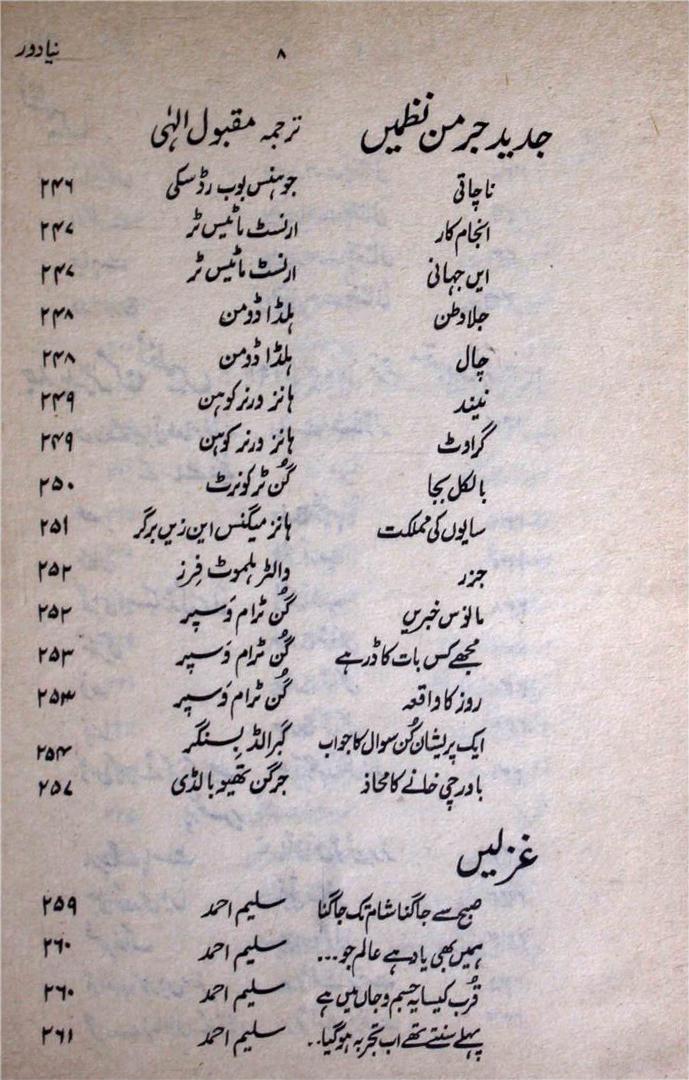 نیا دور ۸
جدید جرمن نظمیں ترجمہ مقبول الٰہی
ناچاقی جوہنس بوب رڈسکی ۲۴۶
انجام کار ارنسٹ مائیس ٹر ۲۴۷
ایں جہانی ارنسٹ مائیس ٹر ۲۴۷
جلاوطن ہلڈا ڈومن ۲۴۸
چال ہلڈا ڈومن ۲۴۸
نیند ہانز ورنر کوہن ۲۴۹
گراوٹ ہانز ورنر کوہن ۲۴۹
بالکل بجا گُن ٹر کونرٹ ۲۵۰
سایوں کی مملکت ہانز میگنس این زیں برگر ۲۵۱
جزر والٹر ہلموٹ فِرز ۲۵۲
مانوس خبریں گُن ٹرام وَسپر ۲۵۲
مجھے کس بات کا ڈر ہے گُن ٹرام وَسپر ۲۵۳
روز کا واقعہ گُن ٹرام وَسپر ۲۵۳
ایک پریشان کُن سوال کا جواب گبرالڈ بِسنگر ۲۵۴
باورچی خانے کا محاذ جرگن تھیوبالڈی ۲۵۷
غزلیں
صبح سے جاگنا شام تک جاگنا سلیم احمد ۲۵۹
ہمیں بھی یاد ہے عالم جو... سلیم احمد ۲۶۰
قُرب کیسا یہ جسم و جاں میں ہے سلیم احمد ۲۶۰
پہلے سنتے تھے اب تجربہ ہو گیا.. سلیم احمد ۲۶۱